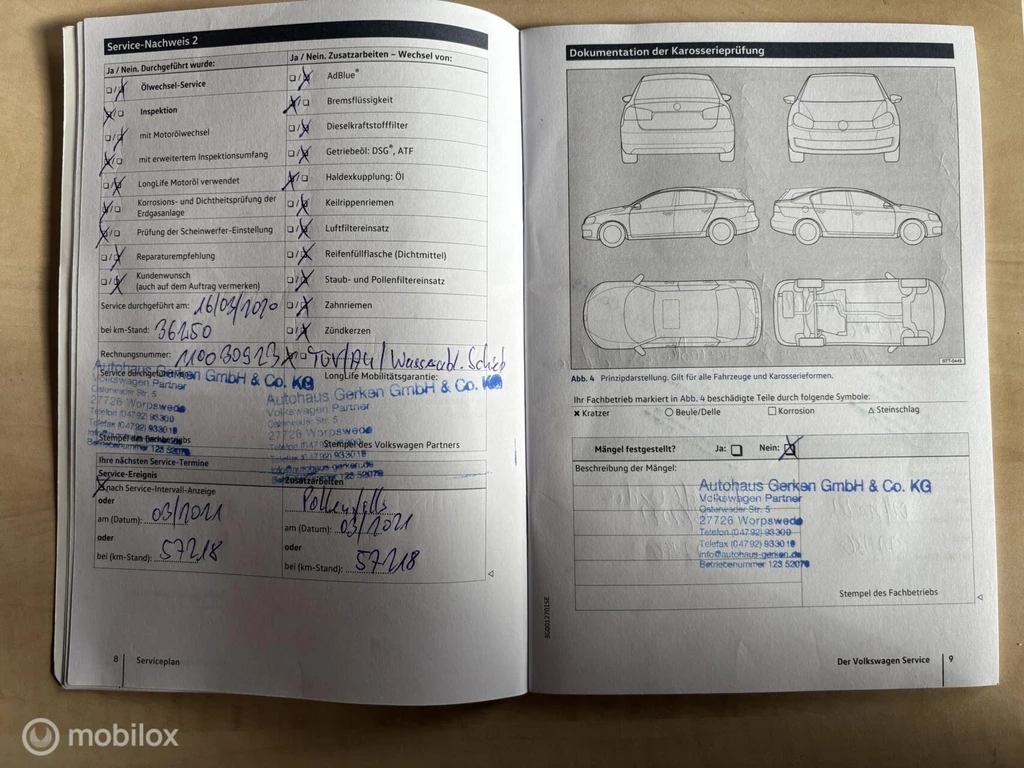 Service-Nachweis 2
Ja / Nein. Durchgeführt wurde:
Ölwechsel-Service
Inspektion
mit Motorölwechsel
mit erweitertem Inspektionsumfang
LongLife Motoröl verwendet
Korrosions- und Dichtheitsprüfung der
Erdgasanlage
Prüfung der Scheinwerfer-Einstellung
Reparaturempfehlung
Kundenwunsch
(auch auf dem Auftrag vermerken)
Service durchgeführt am: 16/03/2020
bei km-Stand: 36250
Rechnungsnummer: 110030923
Autohaus Gerken GmbH & Co. KG
Volkswagen Partner
Osterweder Str. 5
27726 Worpswede
Telefon (04792) 93300
Stempel des Fachbetriebs
Betriebenummer 123 52078
Ja / Nein. Zusatzarbeiten – Wechsel von:
AdBlue®
Bremsflüssigkeit
Dieselkraftstofffilter
Getriebeöl: DSG®, ATF
Haldexkupplung: Öl
Keilrippenriemen
Luftfiltereinsatz
Reifenfüllflasche (Dichtmittel)
Staub- und Pollenfiltereinsatz
Zahnriemen
Zündkerzen
TÜV/AU/
LongLife Mobilitätsgarantie:
Autohaus Gerken GmbH & Co. KG
Volkswagen Partner
Osterweder Str. 5
27726 Worpswede
Stempel des Volkswagen Partners
info@autohaus-gerken.de
Ihre nächsten Service-Termine
Service-Ereignis
nach Service-Intervall-Anzeige
oder
am (Datum): 03/2021
oder
bei (km-Stand): 57218
Zusatzarbeiten
am (Datum): 03/2021
oder
bei (km-Stand): 57218
8 Serviceplan
Dokumentation der Karosserieprüfung
B7T-0449
Abb. 4 Prinzipdarstellung. Gilt für alle Fahrzeuge und Karosserieformen.
Ihr Fachbetrieb markiert in Abb. 4 beschädigte Teile durch folgende Symbole:
Kratzer Beule/Delle Korrosion Steinschlag
Mängel festgestellt? Ja: Nein:
Beschreibung der Mängel:
Autohaus Gerken GmbH & Co. KG
Volkswagen Partner
Osterweder Str. 5
27726 Worpswede
Telefon (04792) 93300
Telefax (04792) 933019
info@autohaus-gerken.de
Betriebenummer 123 52078
Stempel des Fachbetriebs
3G0012701SE
Der Volkswagen Service 9
mobilox